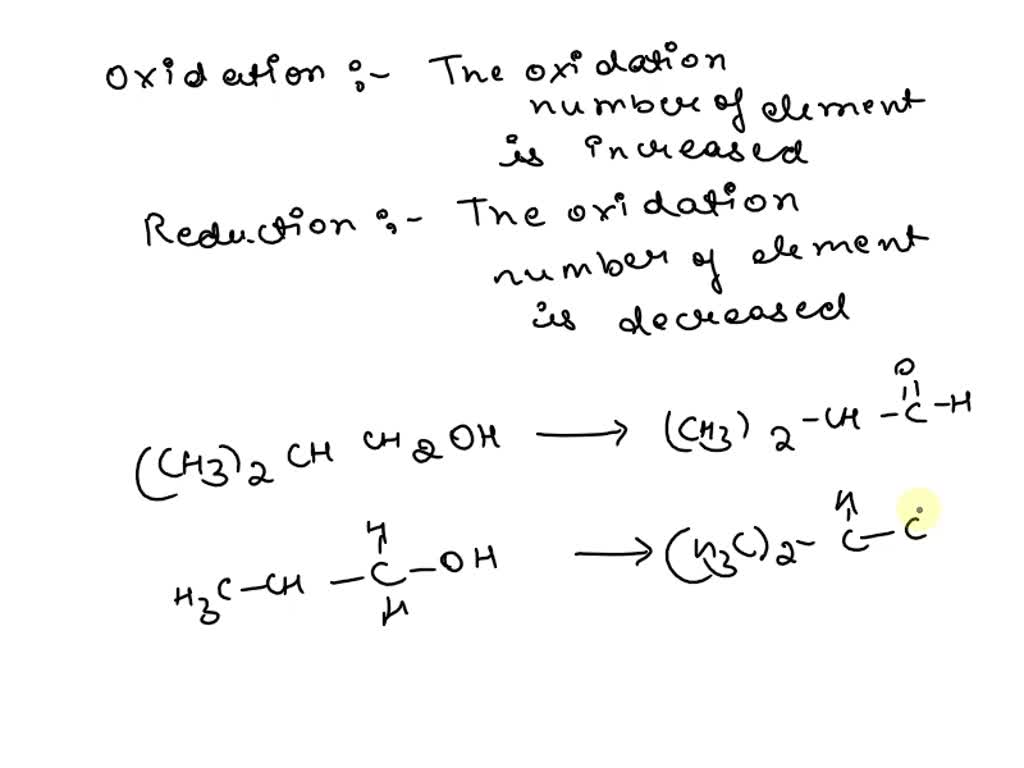 Oxidation :- The oxidation
number of element
is increased
Reduction :- The oxidation
number of element
is decreased
O
(CH3)2 CH CH2OH → (CH3)2 -CH -C-H
H H
H3C-CH -C-OH → (H3C)2- C-C
H